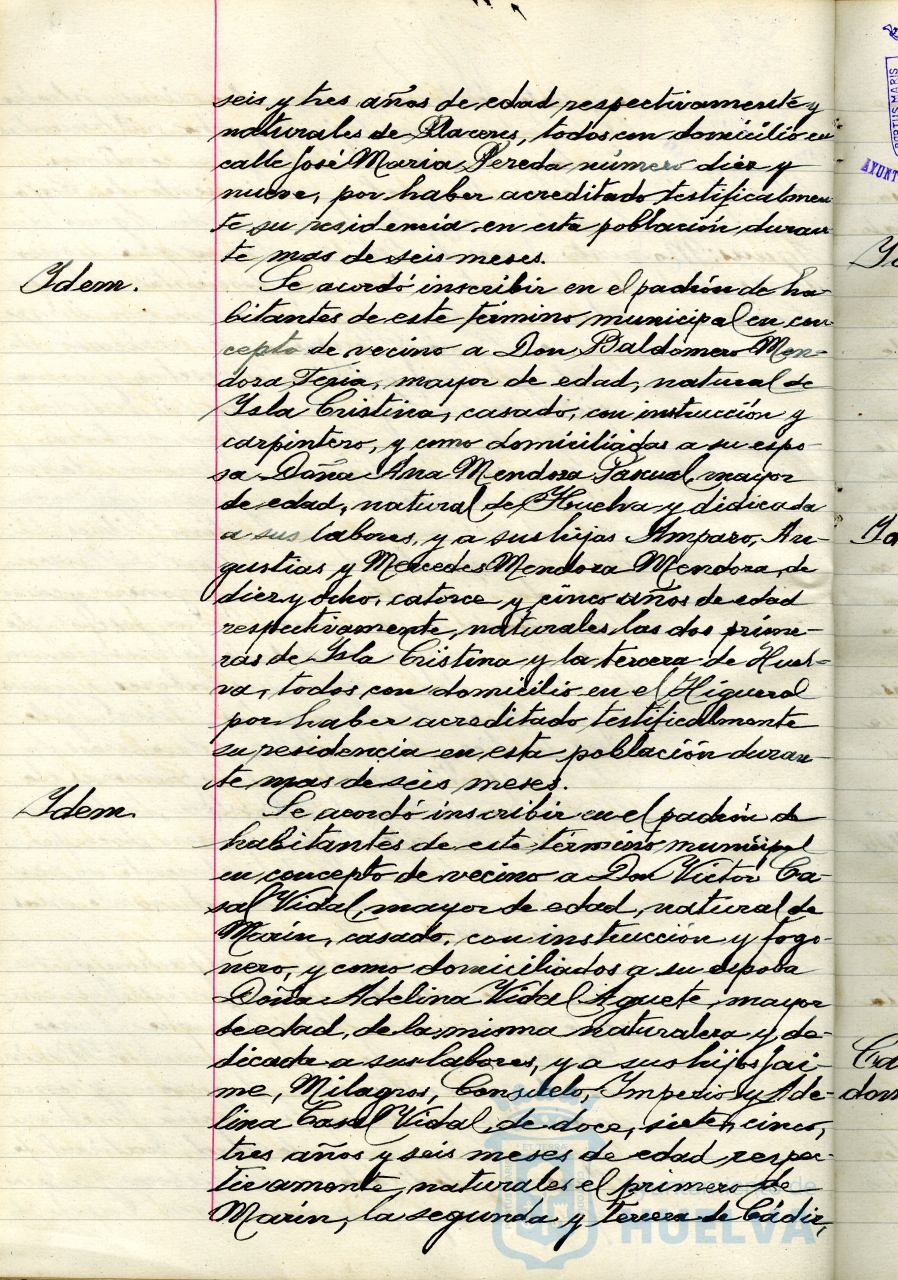 seis y tres años de edad respectivamente y
naturales de Placeres, todos con domicilio en
calle José Maria Pereda número diez y
nueve, por haber acreditado testificalmen
te su residencia en esta población duran
te mas de seis meses.
Idem.
Se acordó inscribir en el padrón de ha-
bitantes de este término municipal en con-
cepto de vecino a Don Baldomero Men-
doza Feria, mayor de edad, natural de
Isla Cristina, casado, con instrucción y
carpintero, y como domiciliadas a su espo-
sa Doña Ana Mendoza Pascual, mayor
de edad, natural de Huelva y didicada
a sus labores, y a sus hijas Amparo, An-
gustias y Mercedes Mendoza Mendoza, de
diez y ocho, catorce y cinco años de edad
respectivamente, naturales las dos prime-
ras de Isla Cristina y la tercera de Huel-
va, todos con domicilio en el Higueral
por haber acreditado testificalmente
su residencia en esta población duran
te mas de seis meses.
Idem.
Se acordó inscribir en el padrón de
habitantes de este término municipal
en concepto de vecino a Don Victor Ca-
sal Vidal, mayor de edad, natural de
Marin, casado, con instrucción y fogo-
nero, y como domiciliados a su esposa
Doña Adelina Vidal Aguete, mayor
de edad, de la misma naturaleza y de-
dicada a sus labores, y a sus hijos Jai-
me, Milagros, Consuelo, Imperio y Ade-
lina Casal Vidal, de doce, siete, cinco,
tres años y seis meses de edad respec-
tivamente, naturales el primero de
Marin, la segunda y tercera de Cádiz,
HUELVA
PORTUS MARIS
AYUNT